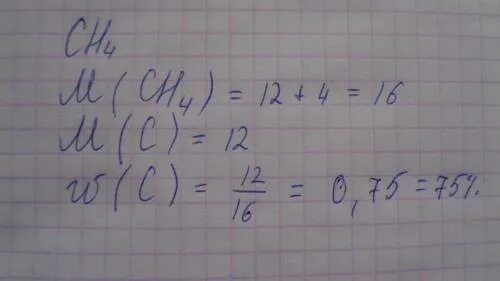 CH₄
M (CH₄) = 12 + 4 = 16
M (C) = 12
w (C) = 12/16 = 0,75 = 75%.